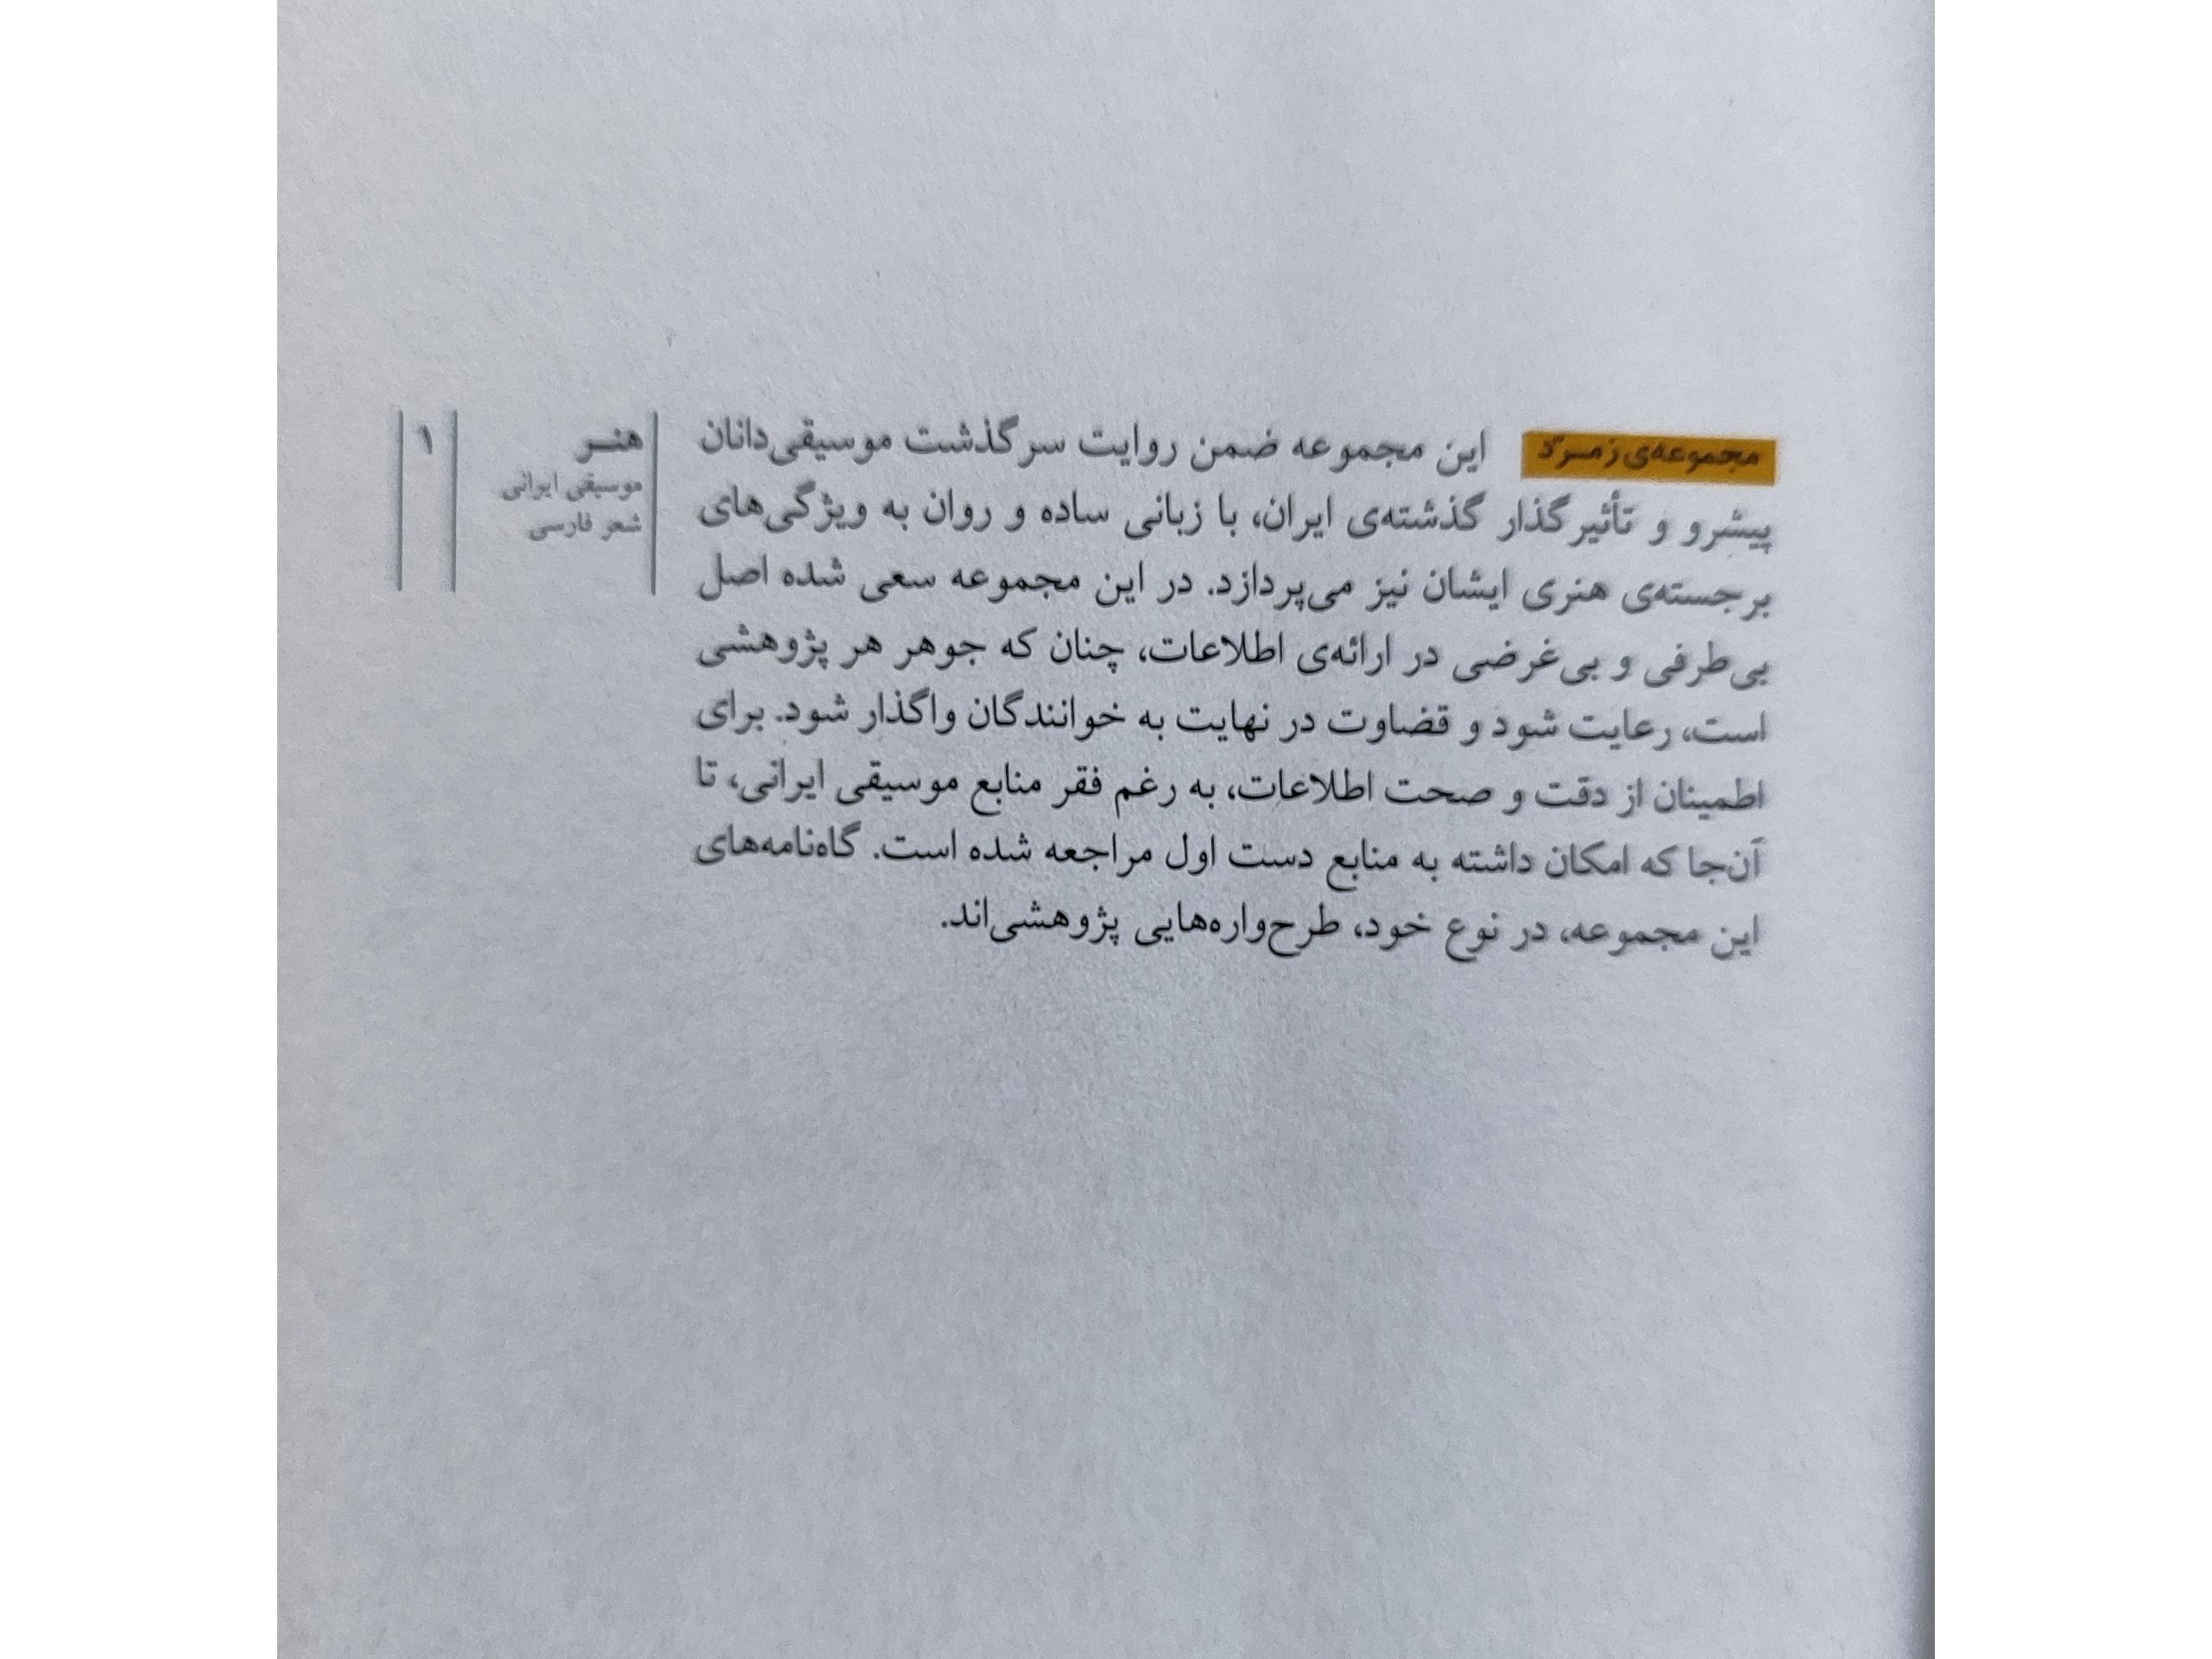 مجموعه‌ی زمرّد این مجموعه ضمن روایت سرگذشت موسیقی‌دانان
پیشرو و تأثیرگذار گذشته‌ی ایران، با زبانی ساده و روان به ویژگی‌های
برجسته‌ی هنری ایشان نیز می‌پردازد. در این مجموعه سعی شده اصل
بی‌طرفی و بی‌غرضی در ارائه‌ی اطلاعات، چنان که جوهر هر پژوهشی
است، رعایت شود و قضاوت در نهایت به خوانندگان واگذار شود. برای
اطمینان از دقت و صحت اطلاعات، به رغم فقر منابع موسیقی ایرانی، تا
آن‌جا که امکان داشته به منابع دست اول مراجعه شده است. گاه‌نامه‌های
این مجموعه، در نوع خود، طرح‌واره‌هایی پژوهشی‌اند.
هنر
موسیقی ایرانی
شعر فارسی
۱